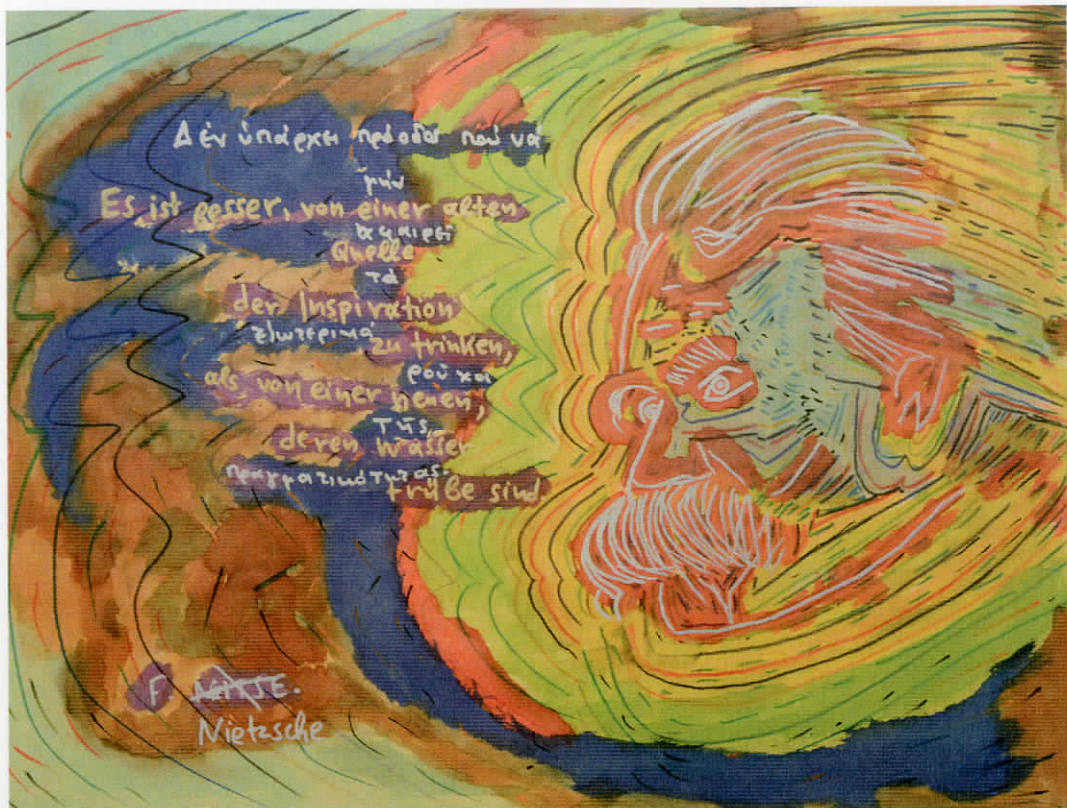 Δέν ὑπάρχει πρόοδος πού νά
μήν
Es ist besser, von einer alten
ἀφαιρεί
Quelle
τά
der Inspiration
ἐξωτερικά
zu trinken,
ρούχα
als von einer neuen,
τῆς
deren Wasser
πραγματικότητας.
trübe sind.
F. NITSE.
Nietzsche